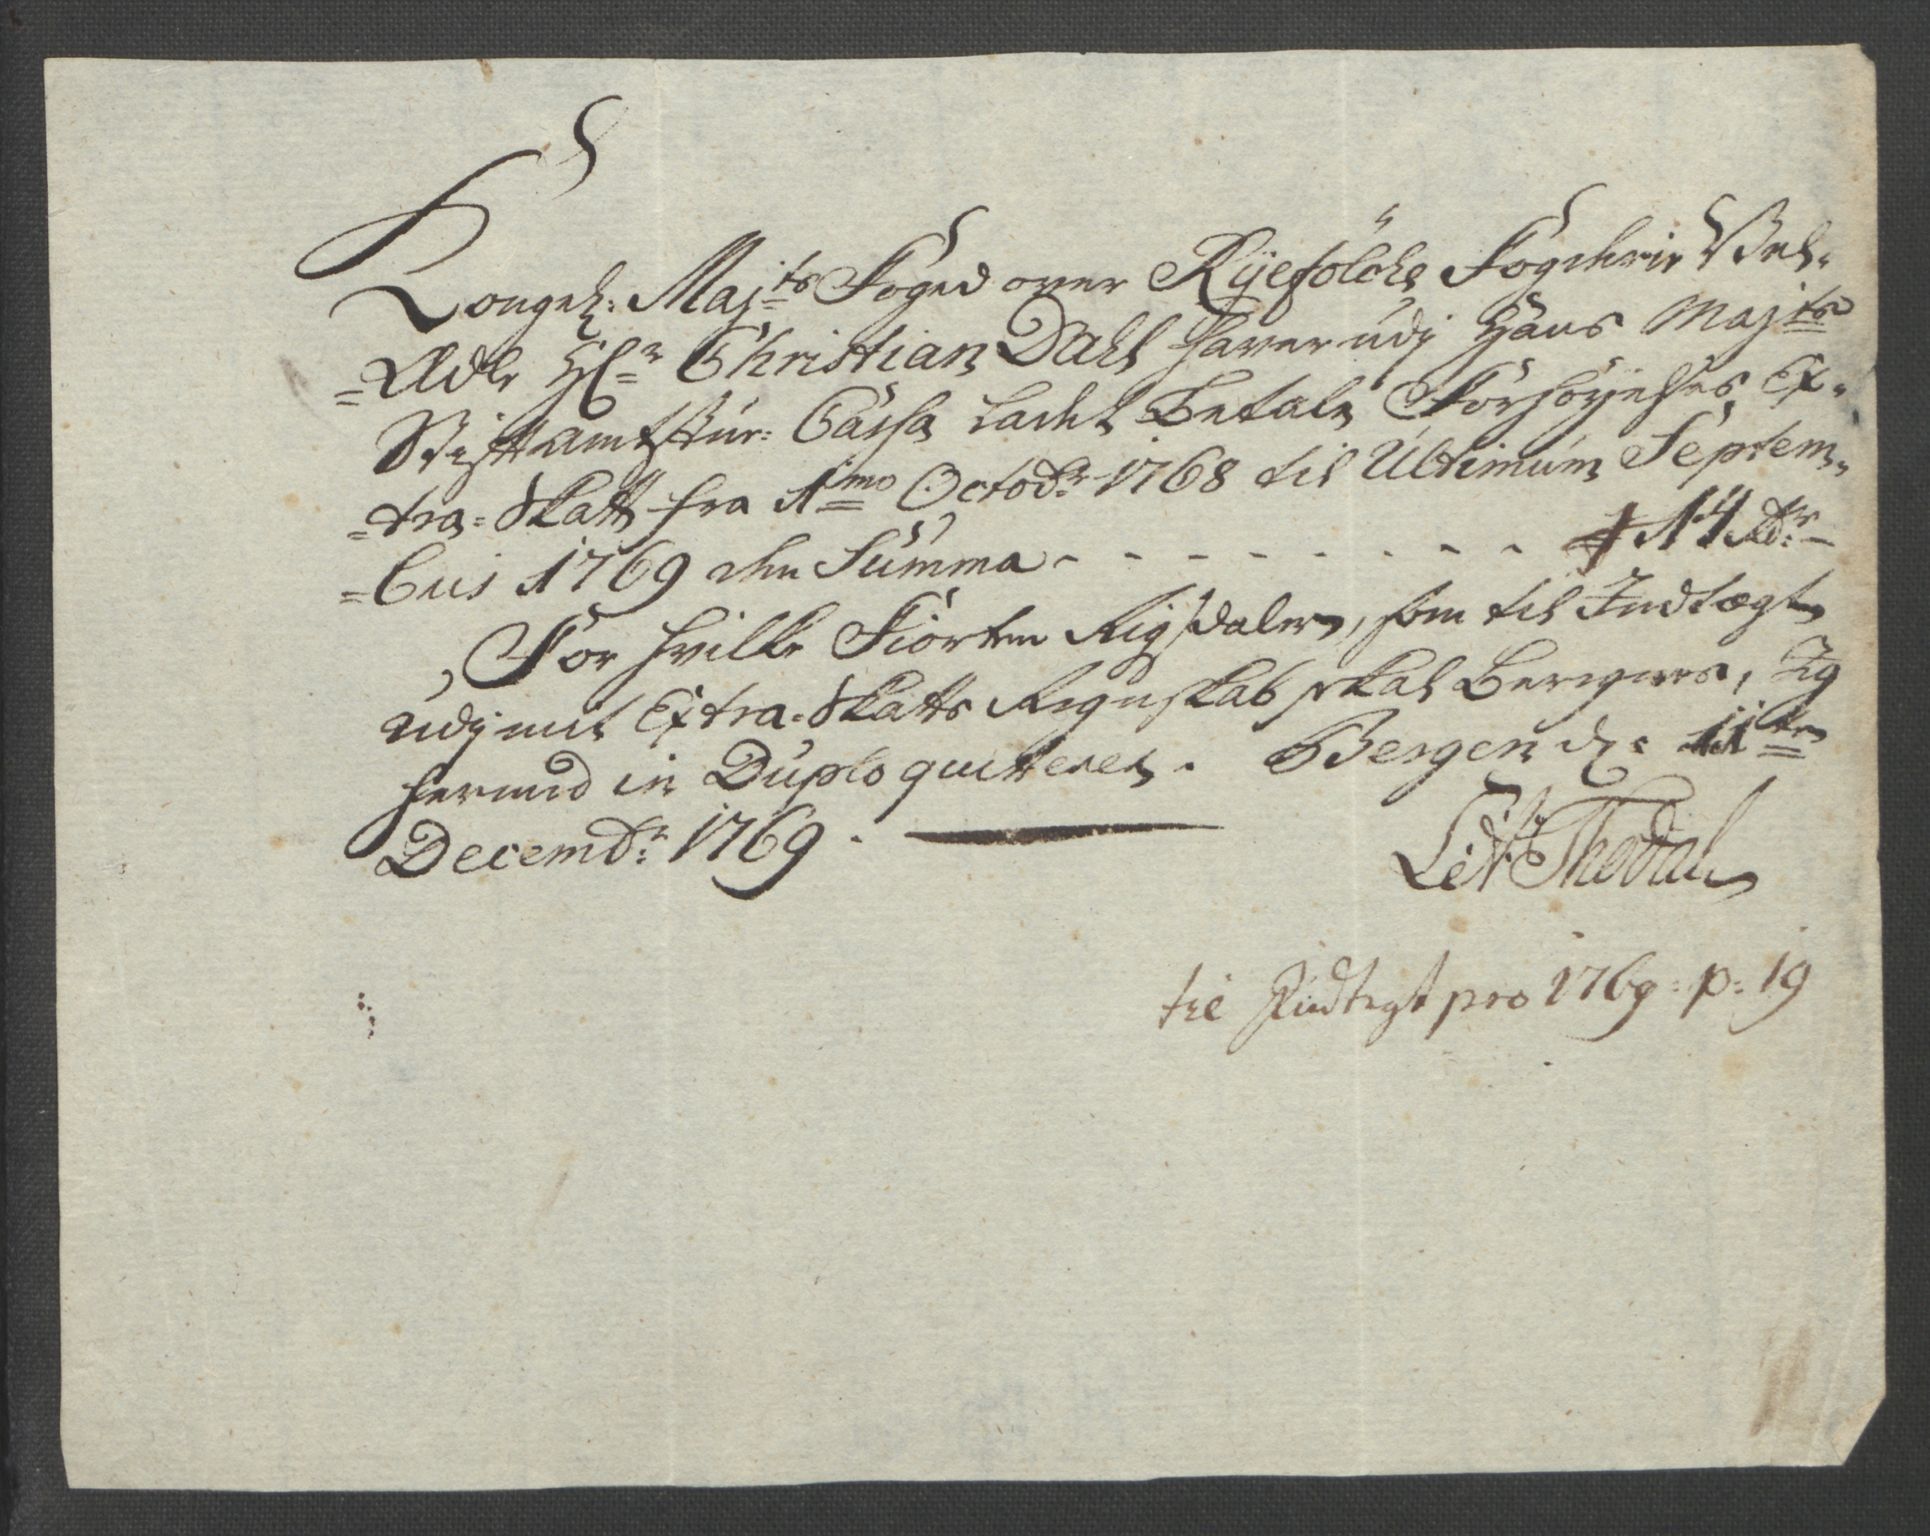 Kongel: Maj:ts Foged over Ryefölche Fogderie Vel-
=Ædle Hr: Christian Dahl haver udj Hans Majts
Stiftamtstur: Cassa ladet Betale Forhöyelses Ex-
=tra-Skatt fra 1mo Octobr: 1768 til Ultimum Septem-
=bris 1769 den Summa - - - - - - - - - 14 Rdr:
For hvilke Fiorten Rigsdaler, som til Indtægt
udj mit Extra-Skatts Regnskab skal Beregnes, Jeg
hermed in Duplo quitterer. Bergen d: 11te
Decembr: 1769.
til Indtegt pro 1769: p: 19